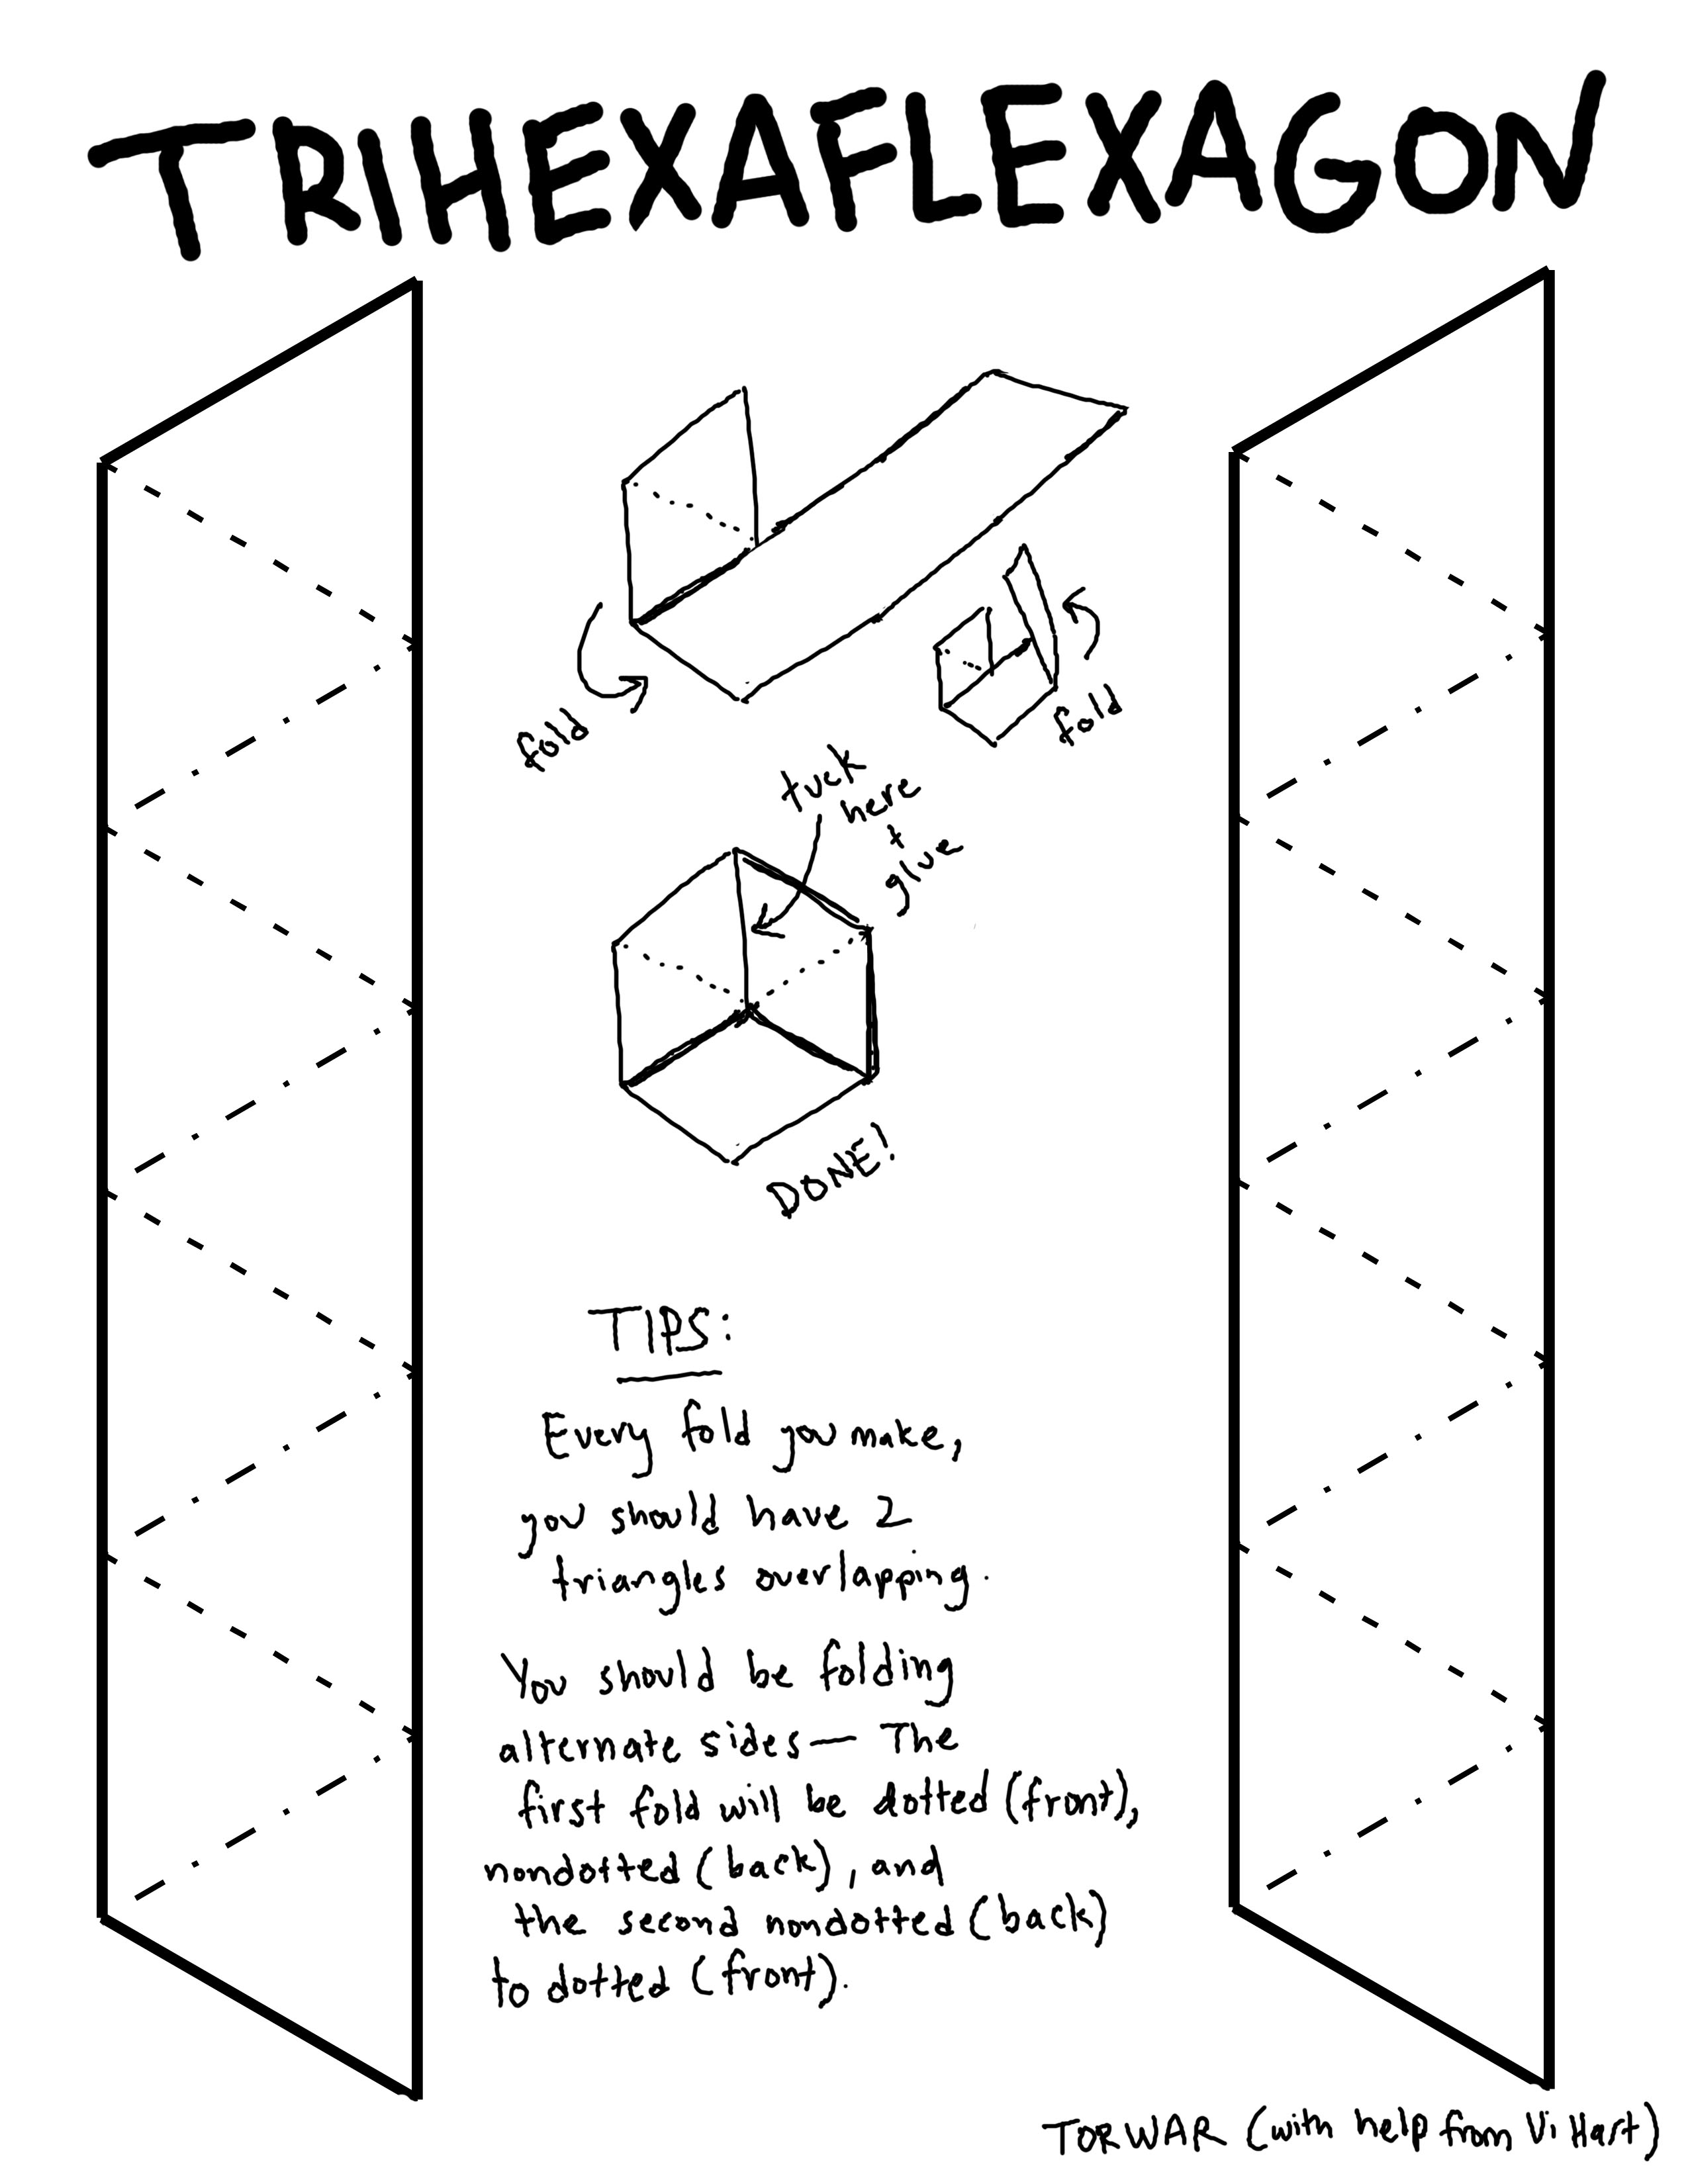 TRIHEXAFLEXAGON
fold
fold
tuck
here
+
glue
DONE!
TIPS:
Every fold you make,
you should have 2
triangles overlapping.
You should be folding
alternate sides— The
first fold will be dotted (front),
nondotted (back), and
the second nondotted (back)
to dotted (front).
TORWAR (with help from Vi Hart)